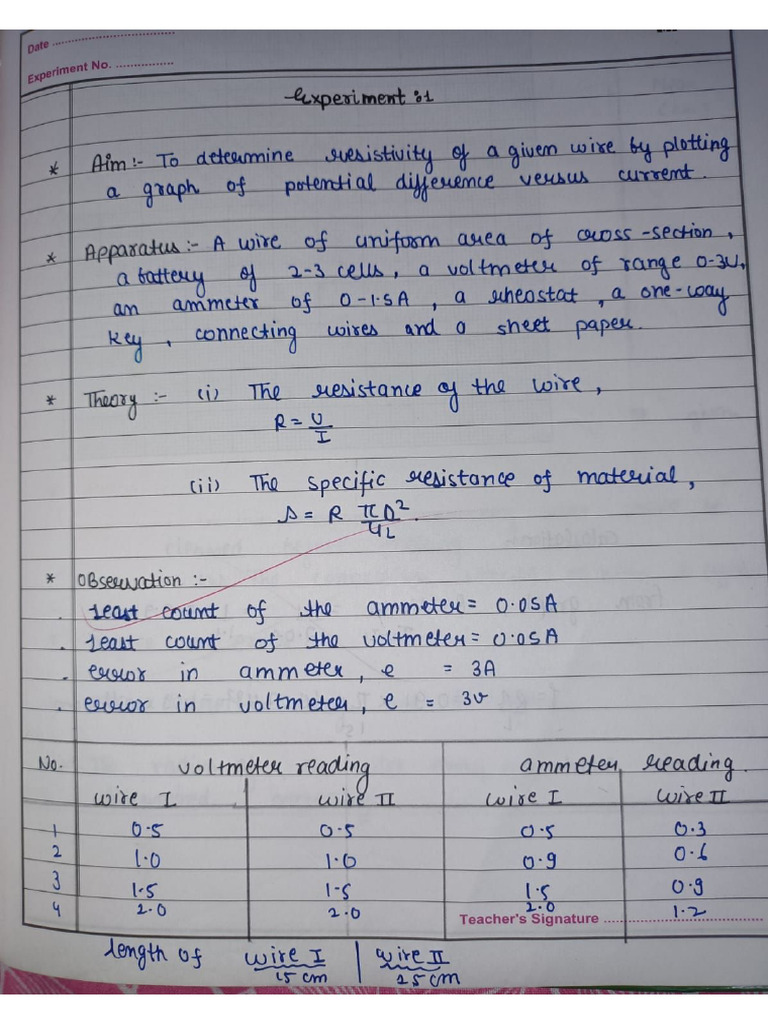 Date
Experiment No.
Experiment :1
* Aim:- To determine resistivity of a given wire by plotting
a graph of potential difference versus current.
* Apparatus:- A wire of uniform area of cross-section,
a battery of 2-3 cells, a voltmeter of range 0-3V,
an ammeter of 0-1.5A, a rheostat, a one-way
key, connecting wires and a sheet paper.
* Theory :- (i) The resistance of the wire,
R = V/I
(ii) The specific resistance of material,
s = R πD²/4L.
* Observation :-
. least count of the ammeter = 0.05A
. least count of the voltmeter = 0.05A
. error in ammeter, e = 3A
. error in voltmeter, e = 3v
No. voltmeter reading ammeter reading
wire I wire II wire I wire II
1 0.5 0.5 0.5 0.3
2 1.0 1.0 0.9 0.6
3 1.5 1.5 1.5 0.9
4 2.0 2.0 2.0 1.2
Teacher's Signature
length of wire I | wire II
15 cm 25 cm